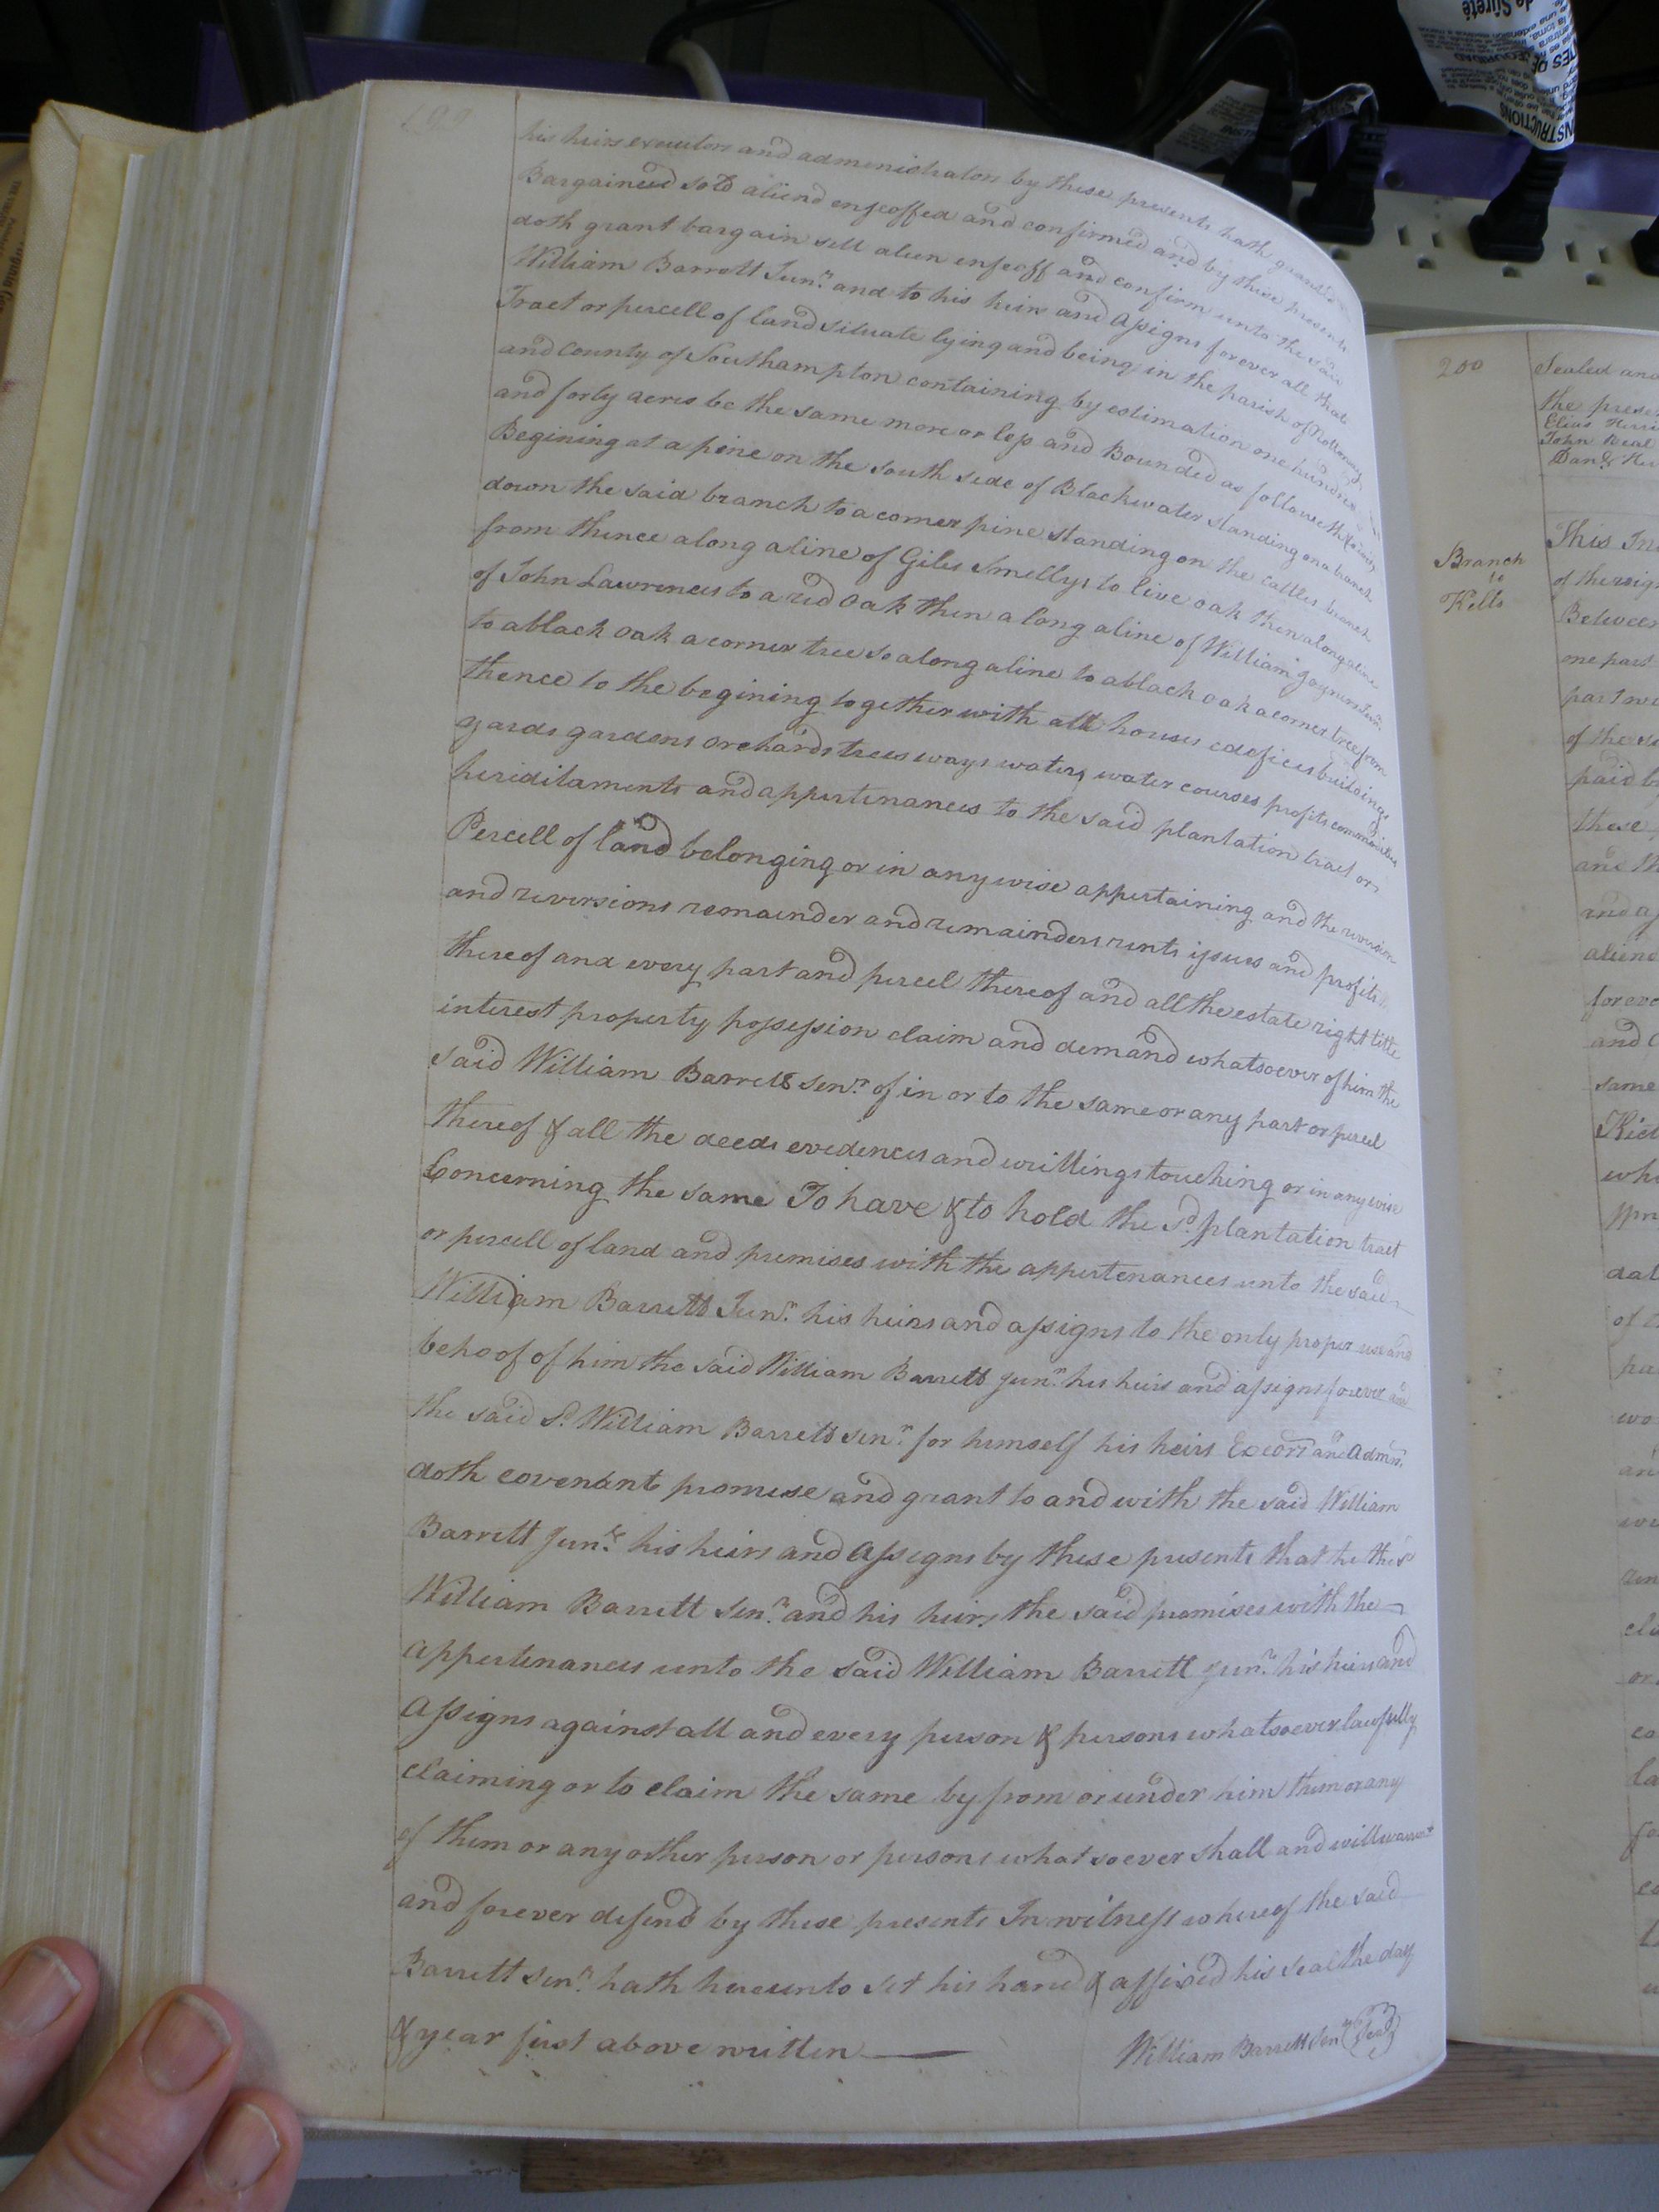 199
his heirs executors and administrators by these presents hath granted
Bargained sold aliend enfeoffed and confirmed and by these presents
doth grant bargain sell alien enfeoff and confirm unto the said
William Barrett Junr. and to his heirs and Assigns forever all that
Tract or percell of land situate lying and being in the parish of Nottoway
and County of Southampton containing by estimation one hundred
and forty acres be the same more or less and Bounded as followeth (to wit)
Begining at a pine on the South side of Blackwater standing on a branch
down the said branch to a corner pine standing on the cattles branch
from thence along a line of Giles Smellys to live oak then along a line
of John Lawrences to a red Oak then along a line of William joyners Junr.
to a black oak a corner tree so along a line to a black oak a corner tree from
thence to the begining together with all houses edefices buildings
yards gardens orchards trees ways waters water courses profits comodities
heriditaments and appertinances to the said plantation tract or
Percell of land belonging or in any wise appertaining and the revirsion
and reversions remainder and remainders rents issues and profits
thereof and every part and percel thereof and all the estate right title
interest property possession claim and demand whatsoever of him the
said William Barrett Senr. of in or to the same or any part or percel
thereof & all the deeds evidences and writtings touching or in any wise
Concerning the same To have & to hold the sd. plantation tract
or percell of land and premises with the appertenances unto the said
William Barrett Junr. his heirs and assigns to the only proper use and
behoof of him the said William Barrett junr. his heirs and assigns forever and
the said sd. William Barrett senr. for himself his heirs Exeors and Admrs.
doth covenant promise and grant to and with the said William
Barrett Junr. his heirs and Assigns by these presents that he the sd
William Barrett Senr. and his heirs the said premises with the
appertenances unto the said William Barrett junr. his heirs and
Assigns against all and every person & persons whatsoever lawfully
claiming or to claim the same by from or under him them or any
of them or any other person or persons whatsoever shall and will warrant
and forever defend by these presents In witness whereof the said
Barrett senr. hath hereunto set his hand & affixed his seal the day
& year first above written
William Barrett Senr (Seal)
200
Sealed and
the prese
Elias Herri
John Neal
Branch
to
Kello
This In
of the reig
Between
one part
part wi
of the s
paid b
these
and th
alien
forev
and C
same